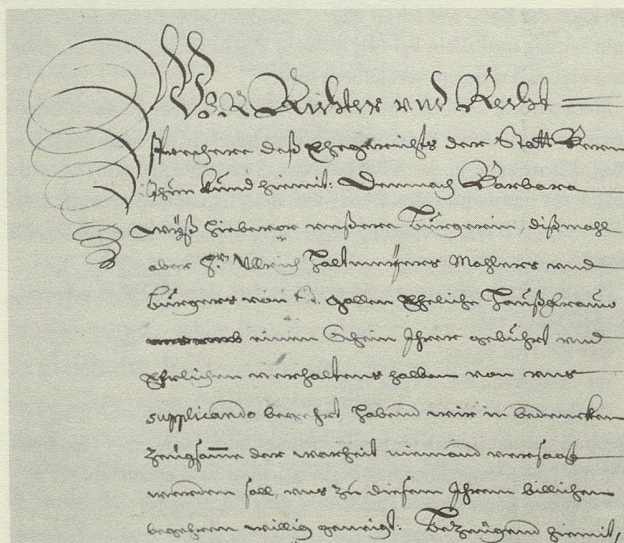 Wir Richter und Recht=
sprechere deß Ehegerichts der Statt Bern
thun kund hiemit: Demnach Barbara
Wyß hiebevor unsere Burgerin, dißmahl
aber Hr. Ullrich Haltmeyers Mahlers und
Burgers von St. Gallen Eheliche Haußfrauw
einen Schein Ihrer gebuhrt und
Ehrlichen verhaltens halben von uns
supplicando begehrt habend wir in bedencken
Zeugsamme der warheit niemand versagt
werden soll, uns zu diesem Ihrem billichen
begehren willig geneigt. Bezeugend hiemit,